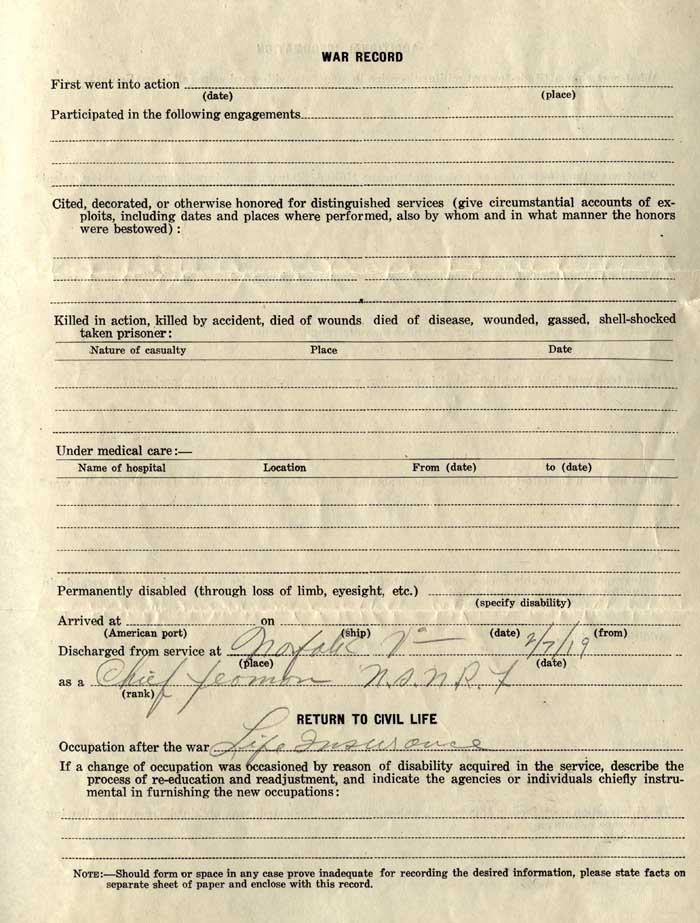 WAR RECORD
First went into action
(date) (place)
Participated in the following engagements
Cited, decorated, or otherwise honored for distinguished services (give circumstantial accounts of ex-
ploits, including dates and places where performed, also by whom and in what manner the honors
were bestowed) :
Killed in action, killed by accident, died of wounds died of disease, wounded, gassed, shell-shocked
taken prisoner:
Nature of casualty Place Date
Under medical care:—
Name of hospital Location From (date) to (date)
Permanently disabled (through loss of limb, eyesight, etc.)
(specify disability)
Arrived at on
(American port) (ship) (date) (from)
Discharged from service at Norfolk Va 2/7/19
(place) (date)
as a Chief Yeoman U.S.N.R.F
(rank)
RETURN TO CIVIL LIFE
Occupation after the war Life Insurance
If a change of occupation was occasioned by reason of disability acquired in the service, describe the
process of re-education and readjustment, and indicate the agencies or individuals chiefly instru-
mental in furnishing the new occupations:
NOTE:—Should form or space in any case prove inadequate for recording the desired information, please state facts on
separate sheet of paper and enclose with this record.